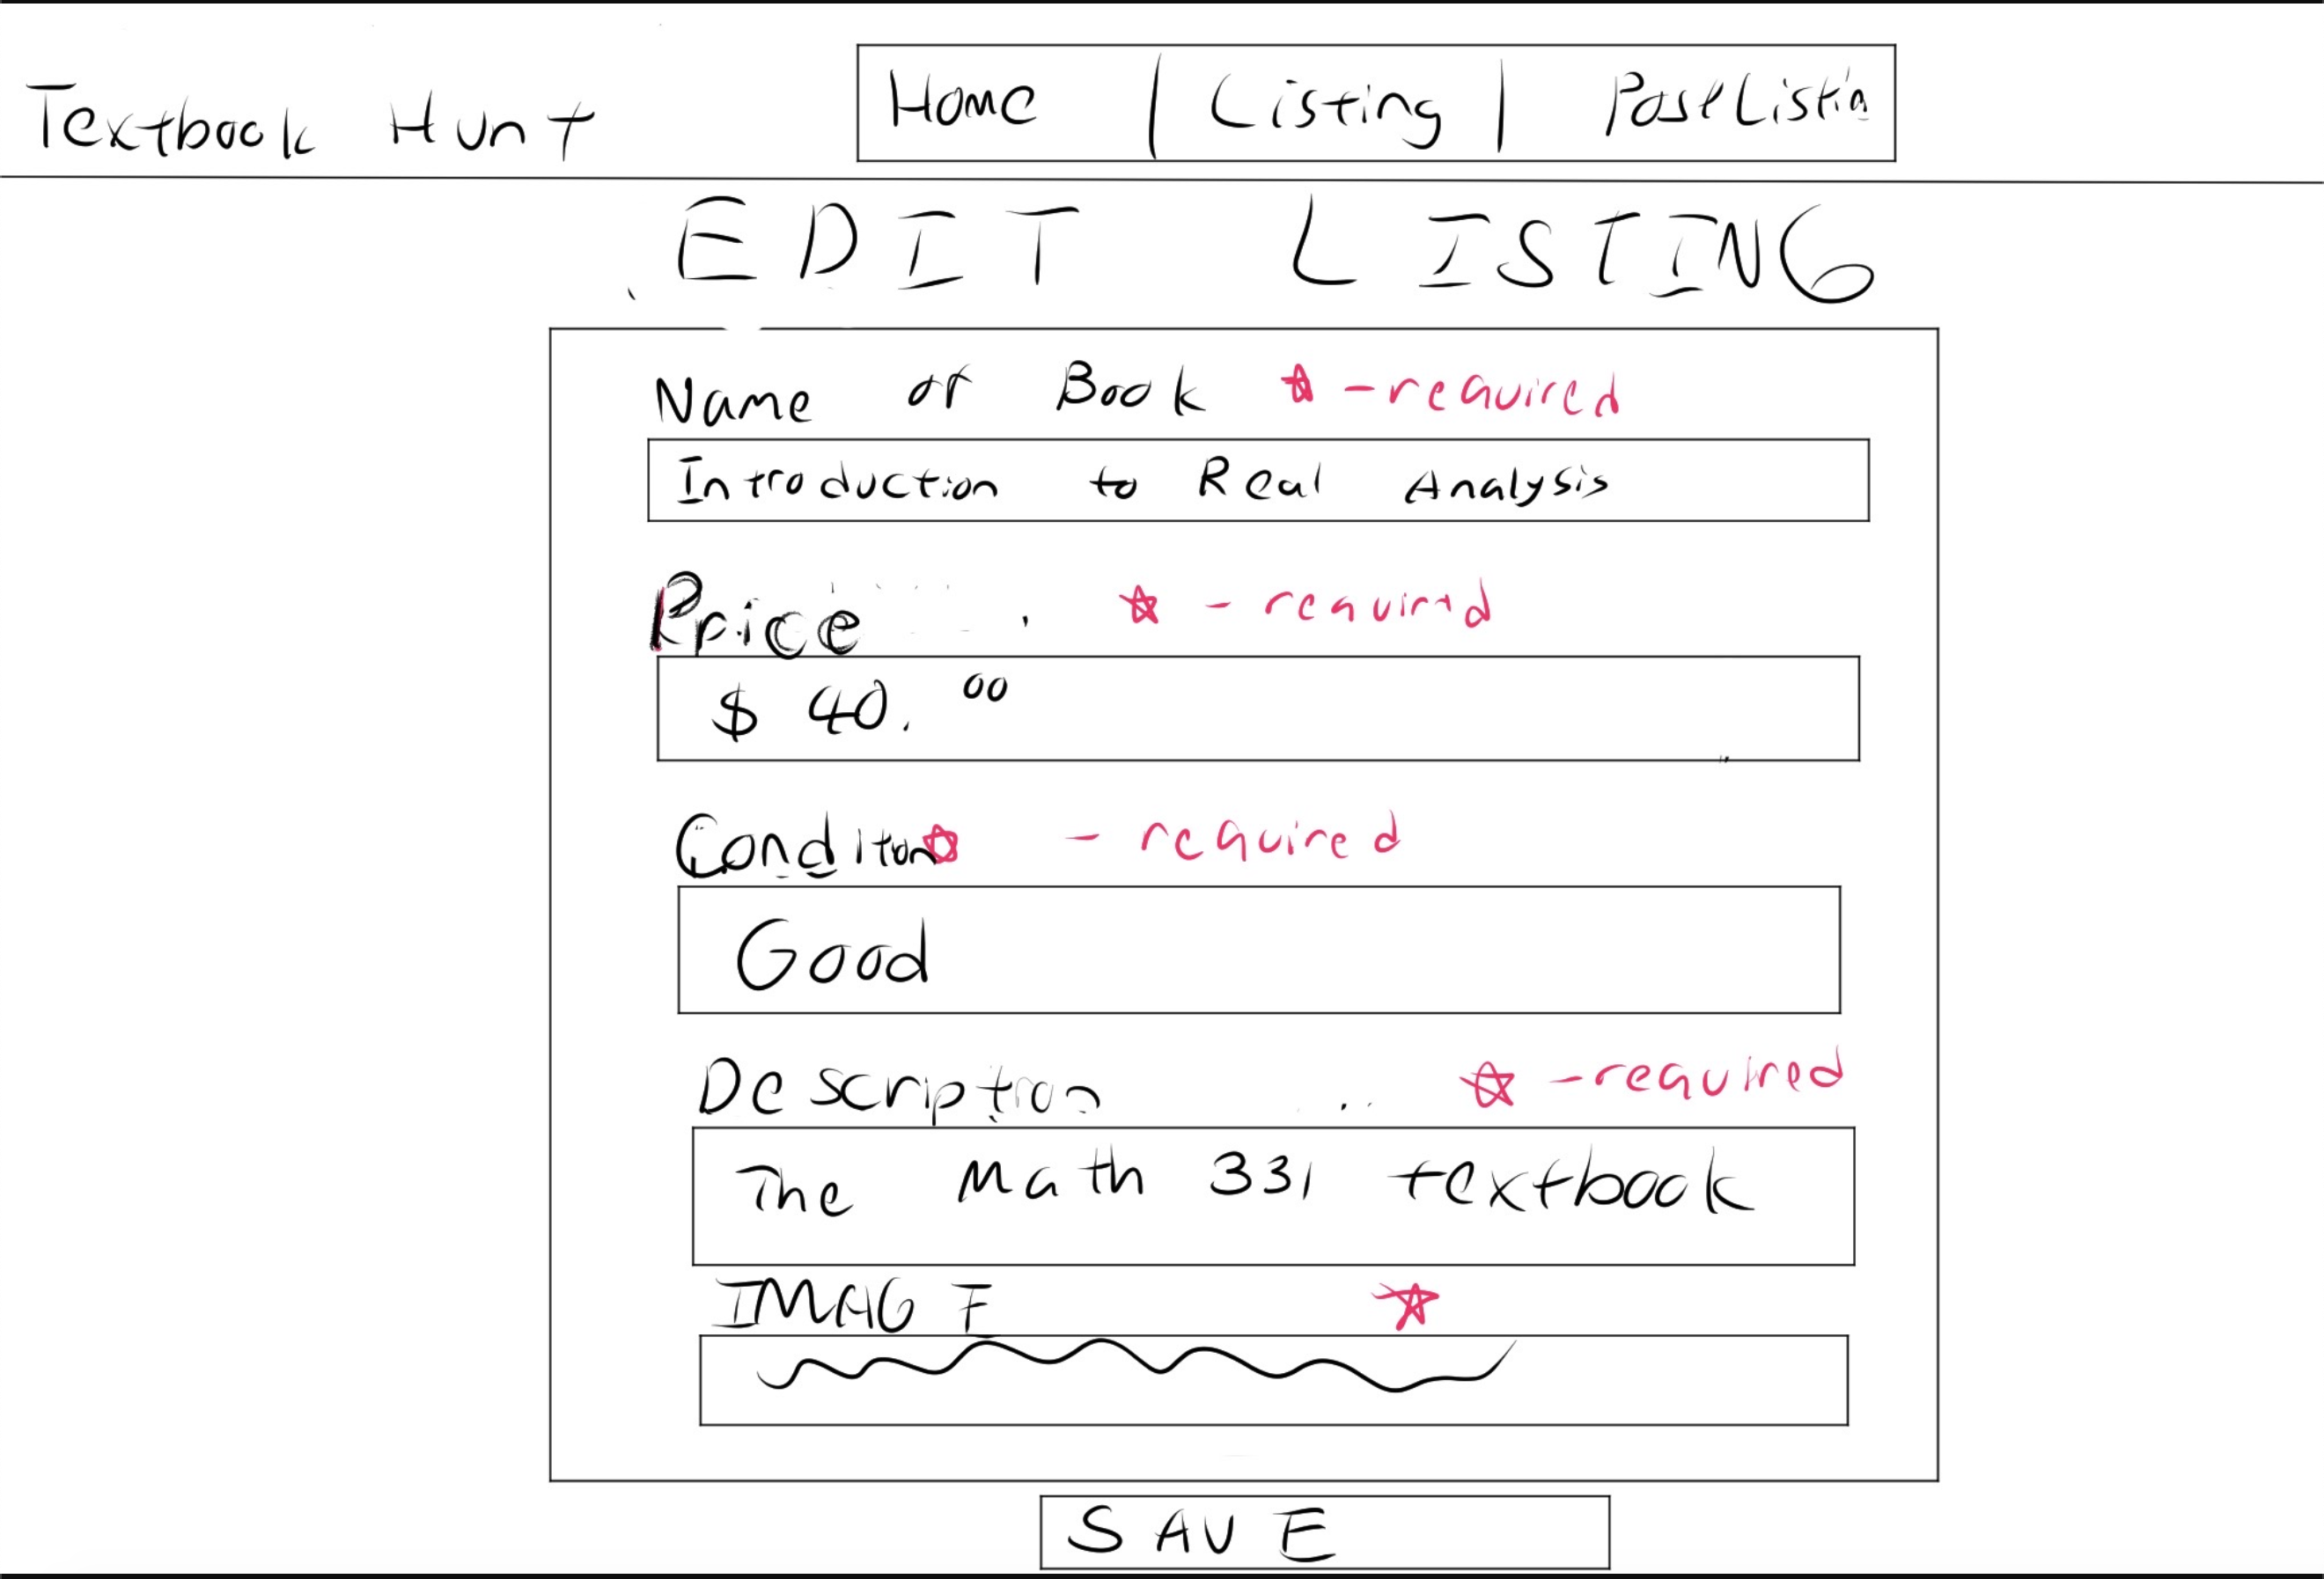 Textbook Hunt
Home | Listing | Post Listin
EDIT LISTING
Name of Book ☆ - required
Introduction to Real Analysis
Price ☆ - required
$ 40.00
Conditon ☆ - required
Good
Description ☆ - required
The Math 331 textbook
IMAGE ☆
SAVE